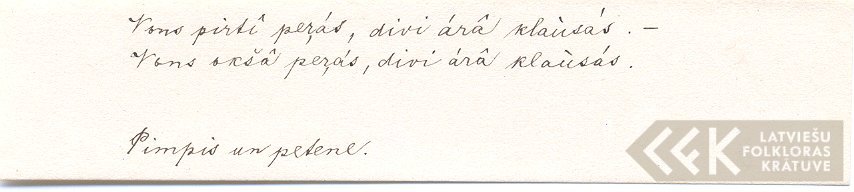 Vons pirtî peŗás, divi árâ klaùsás. –
Vons okšâ peŗás, divi árâ klaùsás.
Pimpis un petene.
LATVIEŠU
FOLKLORAS
KRĀTUVE